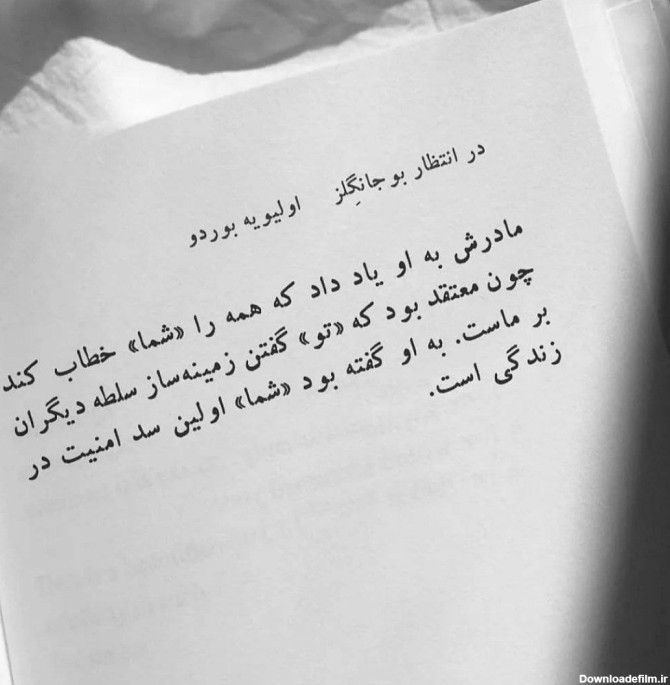 در انتظار بوجانگِلز اولیویه بوردو
مادرش به او یاد داد که همه را «شما» خطاب کند
چون معتقد بود که «تو» گفتن زمینه‌ساز سلطه دیگران
بر ماست. به او گفته بود «شما» اولین سد امنیت در
زندگی است.
Downloadefilm.ir